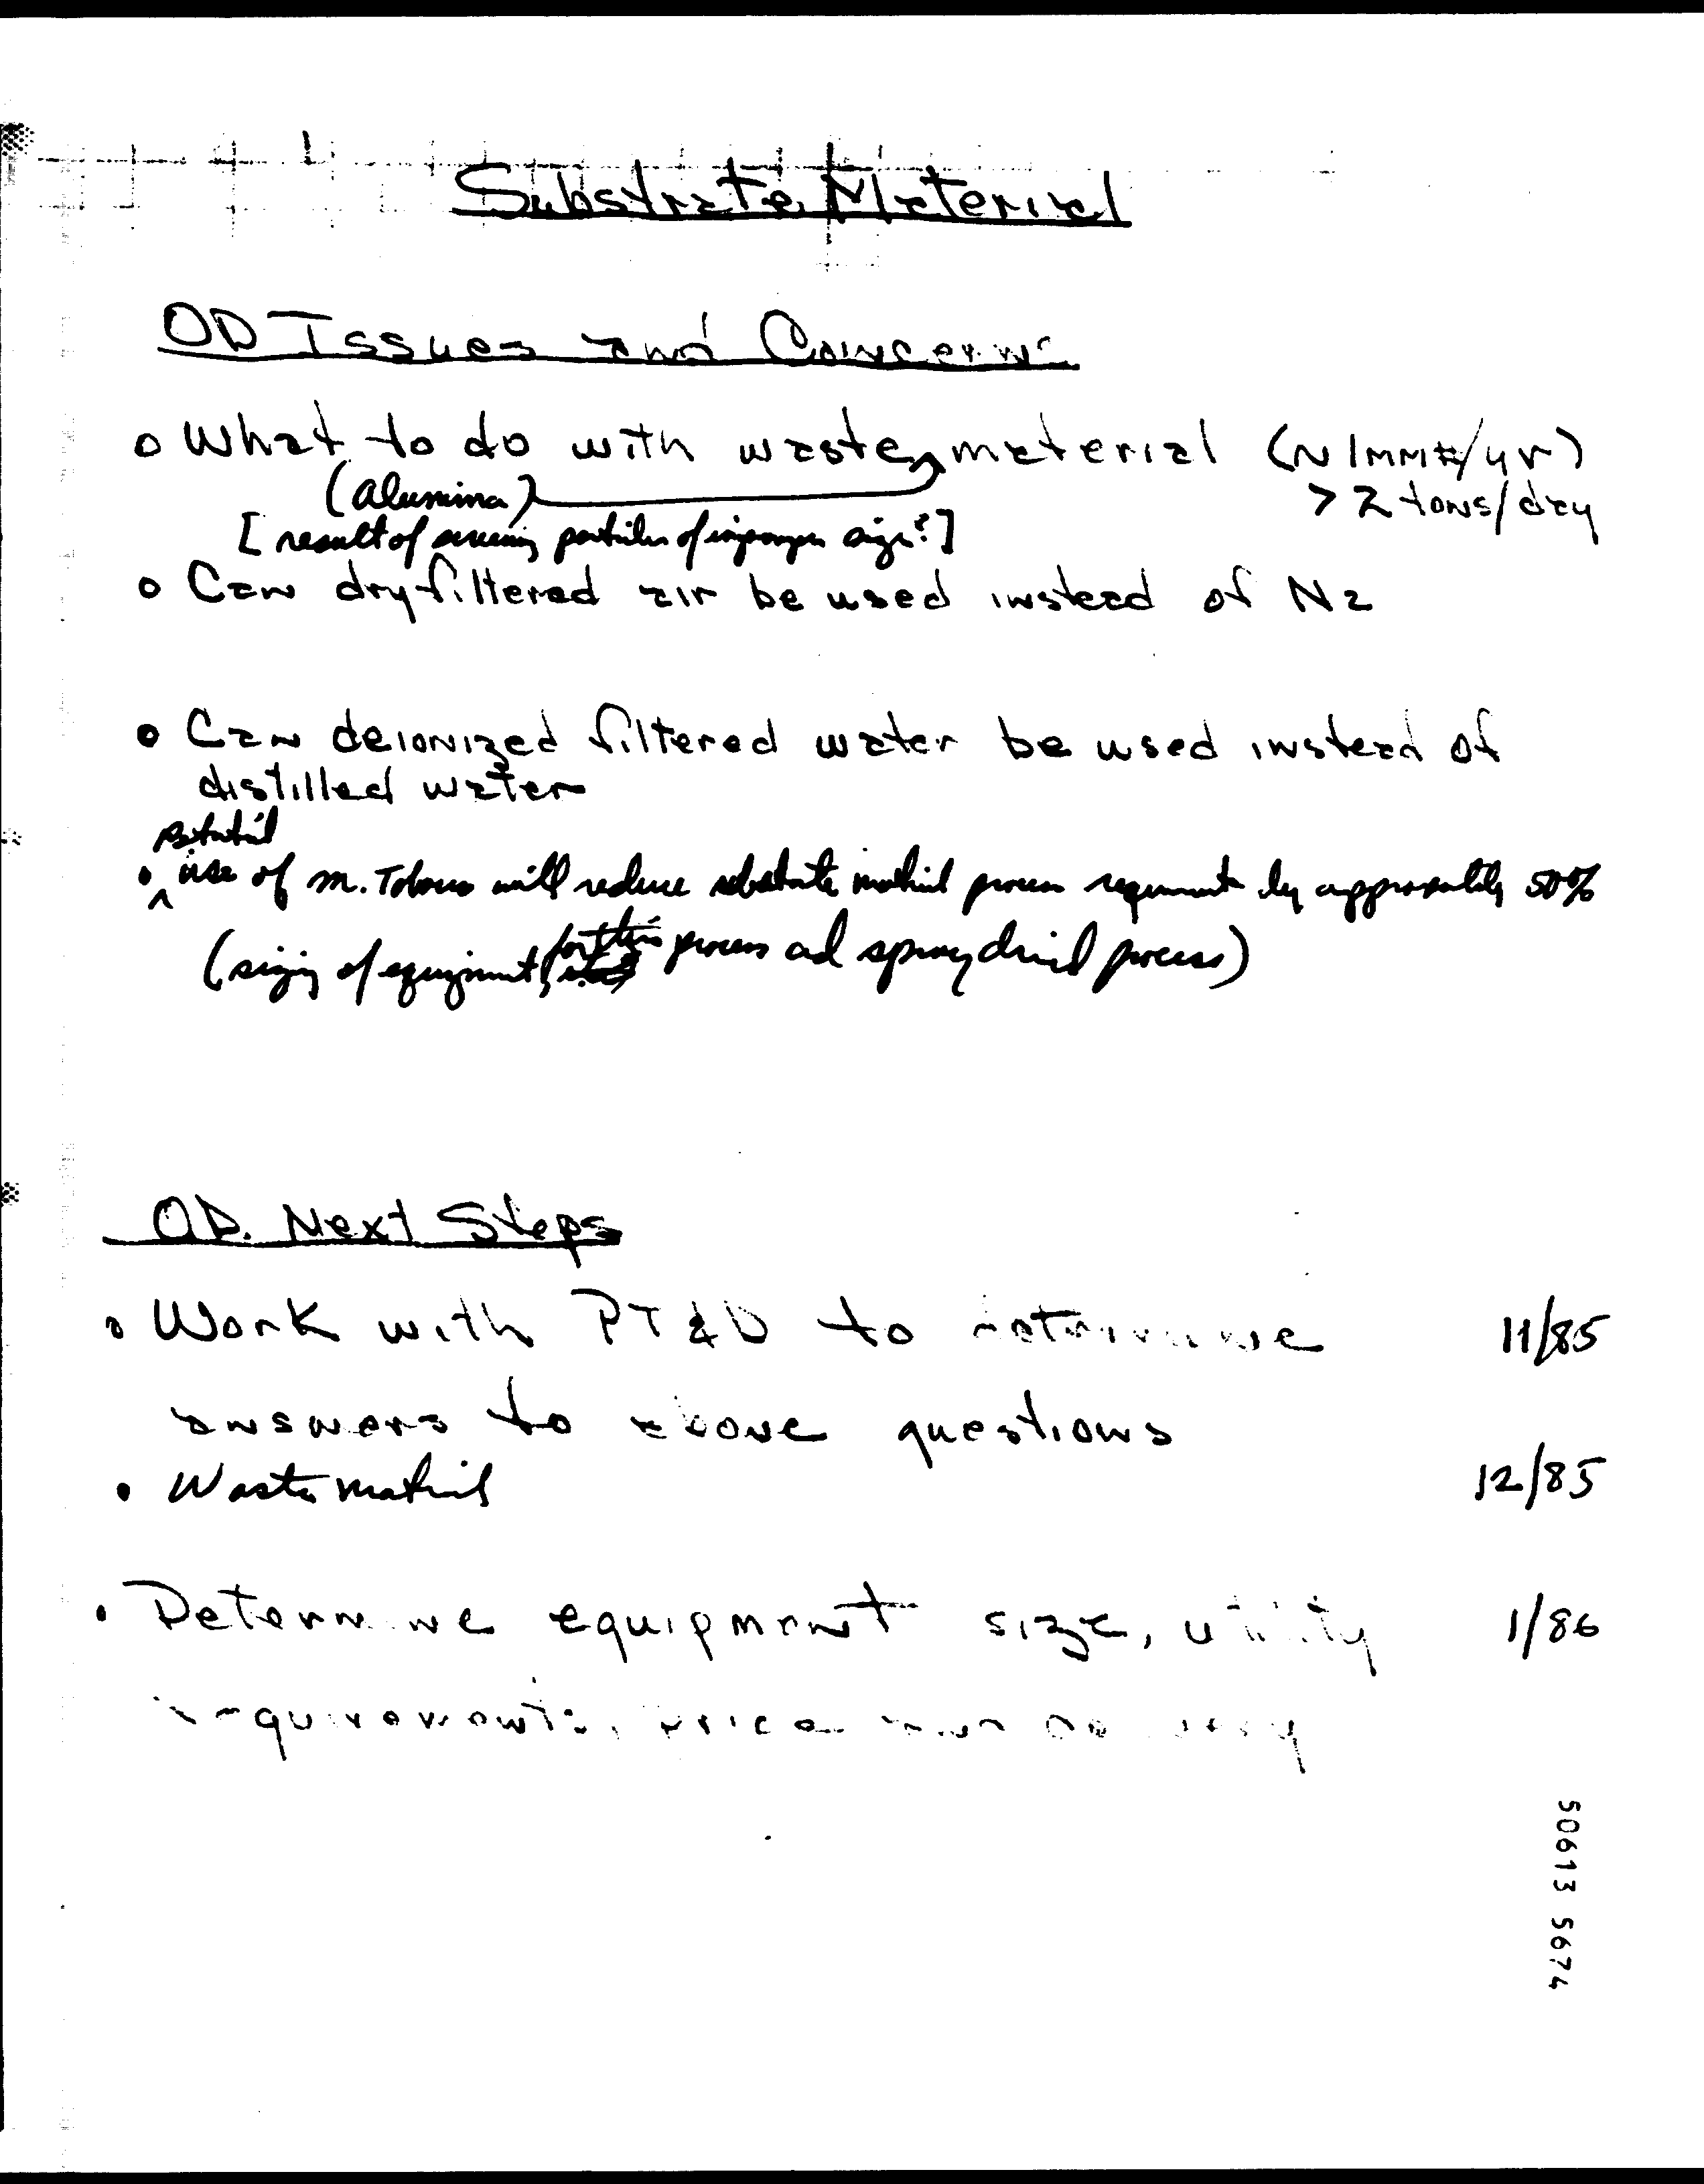 Substrate Material
OD Issues and Concerns
o What to do with waste material (~1MM#/yr)
(alumina) > 2 tons/day
[result of screening particles of improper size?]
o Can dry filtered air be used instead of N2
o Can deionized filtered water be used instead of
distilled water
Potential
• use of m. Tobacco will reduce substrate material process requirements by approximately 50%
(sizing of equipment for this process and spray dried process)
OD. Next Steps
• Work with PT&D to determine 11/85
answers to above questions
• Waste material 12/85
• Determine equipment size, utility 1/86
requirements, price and delivery
50613 5674